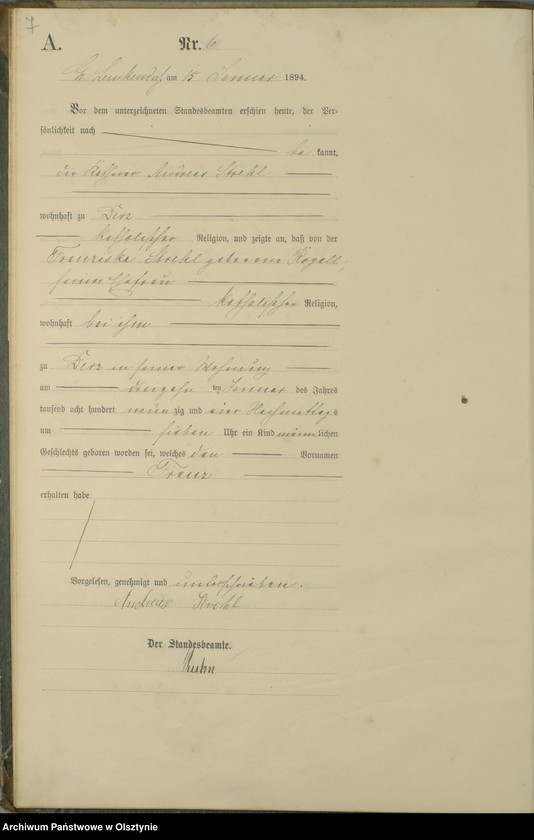 7
A. Nr. 6
am 15 Januar 1894.
Vor dem unterzeichneten Standesbeamten erschien heute, der Per-
sönlichkeit nach
be kannt,
der Käthner Andreas Strehl
wohnhaft zu Derz
katholischer Religion, und zeigte an, daß von der
Franziska Strehl geborene Rogall,
seiner Ehefrau
katholischer Religion,
wohnhaft bei ihm
zu Derz in seiner Wohnung
am ten Januar des Jahres
tausend acht hundert neun zig und vier Nachmittags
um sieben Uhr ein Kind männlichen
Geschlechts geboren worden sei, welches den Vornamen
Franz
erhalten habe
Vorgelesen, genehmigt und unterschrieben.
Andreas Strehl
Der Standesbeamte.
Archiwum Państwowe w Olsztynie